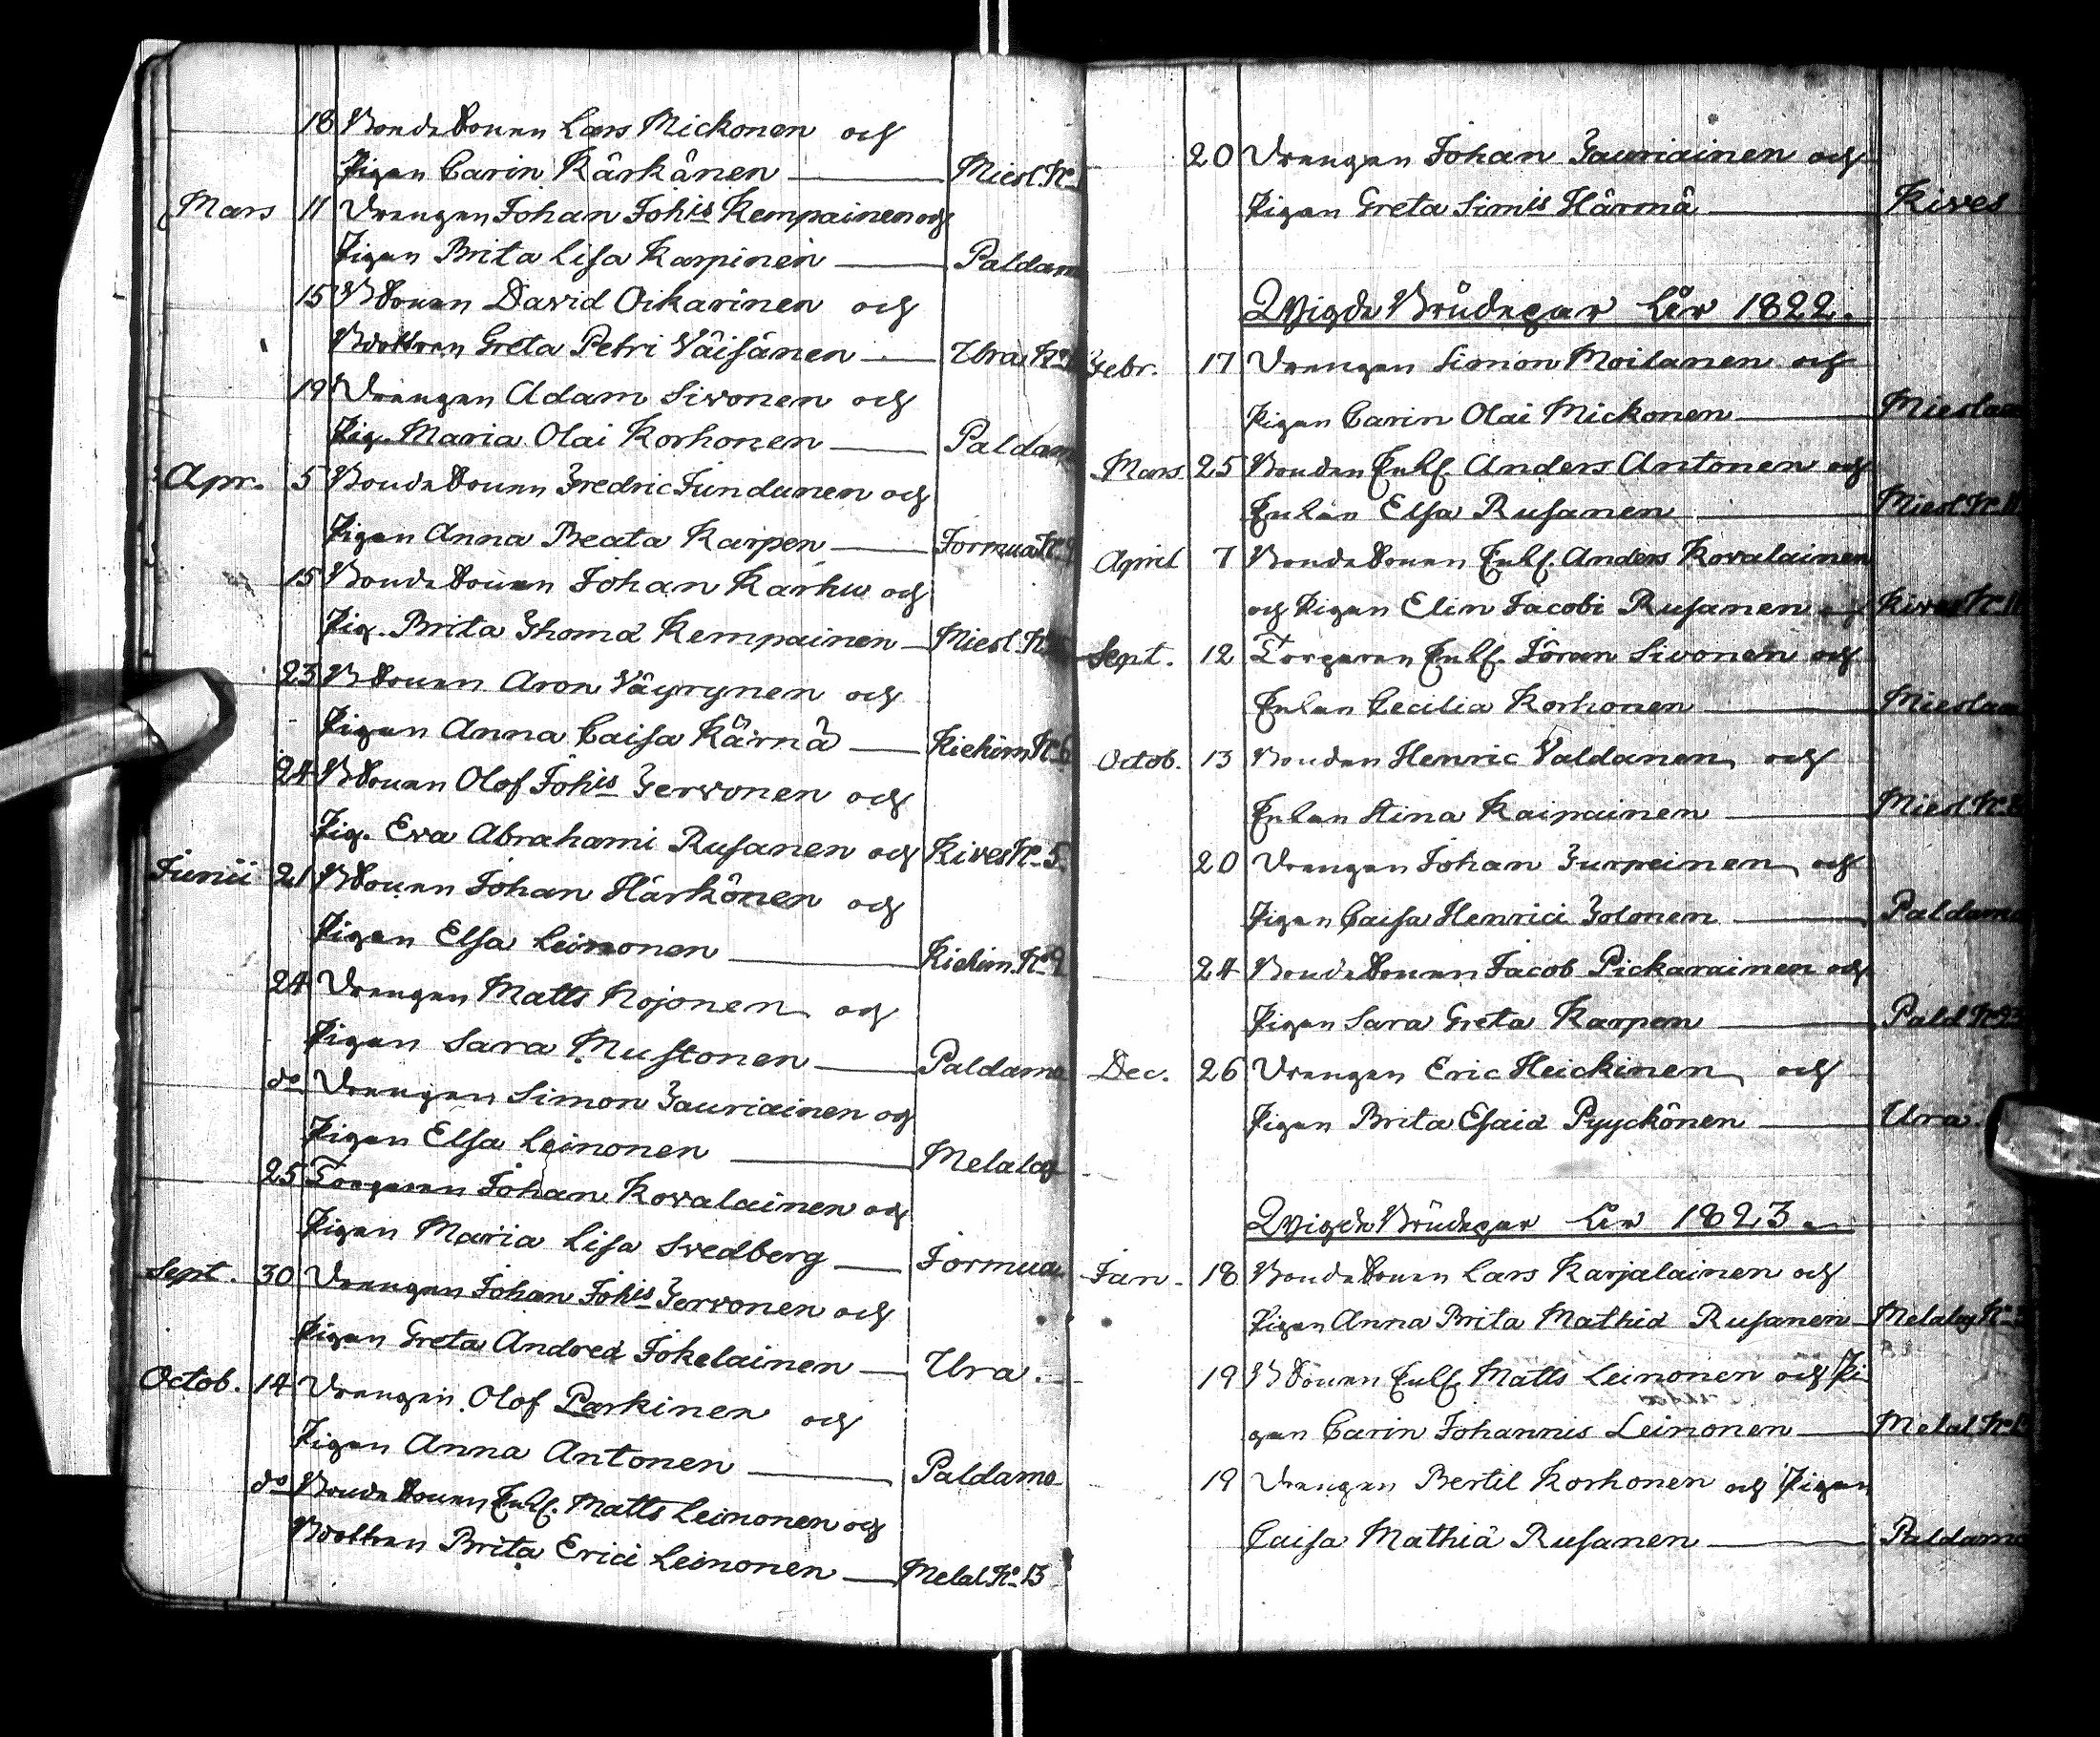 18 Bondesonen Lars Mickonen och
Pigan Carin Kärkänen — Miesl. No
Mars 11 Drengen Johan Johis Kempainen och
Pigan Brita Lisa Karpinen — Paldamo
15 BSonen David Oikarinen och
Bdottren Greta Petri Väisänen — Ura No
19 Drengen Adam Sivonen och
Pig. Maria Olai Korhonen — Paldam
Apr. 5 Bondesonen Fredric Jundunen och
Pigan Anna Beata Karpen — Jormua No
15 Bondesonen Johan Karhu och
Pig. Brita Thomæ Kempainen — Miesl. No
23 BSonen Aron Väyrynen och
Pigan Anna Caisa Kärnä — Kiehim No 6
24 BSonen Olof Johis Tervonen och
Pig. Eva Abrahami Rusanen och Kives No 5.
Junii 21 BSonen Johan Härkönen och
Pigan Elsa Leinonen — Kiehim. No 2
24 Drengen Matts Nojonen och
Pigan Sara Mustonen — Paldamo
do Drengen Simon Tauriainen och
Pigan Elsa Leinonen — Melalax
25 Torparen Johan Kovalainen och
Pigan Maria Lisa Svedberg — Jormua
Sept. 30 Drengen Johan Johis Tervonen och
Pigan Greta Andreæ Jokelainen — Ura.
Octob. 14 Drengen Olof Parkinen och
Pigan Anna Antonen — Paldamo
do Bondesonen Enkl. Matts Leinonen och
Bdottren Brita Erici Leinonen — Melal No 13
20 Drengen Johan Tauriainen och
Pigan Greta Simis Härmä — Kives
Wigde Brudepar År 1822.
Febr. 17 Drengen Simon Moilanen och
Pigan Carin Olai Mickonen — Mieslax
Mars 25 Bonden Enkl. Anders Antonen och
Enkan Elsa Rusanen — Miesl No 11
April 7 Bondesonen Enkl. Anders Kovalainen
och Pigan Elin Jacobi Rusanen — Kives No 11
Sept. 12 Torparen Enkl. Jöran Sivonen och
Enkan Cecilia Korhonen — Mieslax
Octob. 13 Bonden Henric Valdanen och
Enkan Stina Kainainen — Miesl No
20 Drengen Johan Turpeinen och
Pigan Caisa Henrici Tolonen — Paldamo
24 Bondesonen Jacob Pickarainen och
Pigan Sara Greta Karpen — Pald No 23
Dec. 26 Drengen Eric Heickinen och
Pigan Brita Esaiæ Pyyckönen — Ura.
Wigde Brudepar År 1823.
Jan. 18 Bondesonen Lars Karjalainen och
Pigan Anna Brita Mathiæ Rusanen — Melalax No
19 BSonen Enkl. Matts Leinonen och Pi
gan Carin Johannis Leinonen — Melal No
19 Drengen Bertil Korhonen och Pigan
Caisa Mathiæ Rusanen — Paldamo